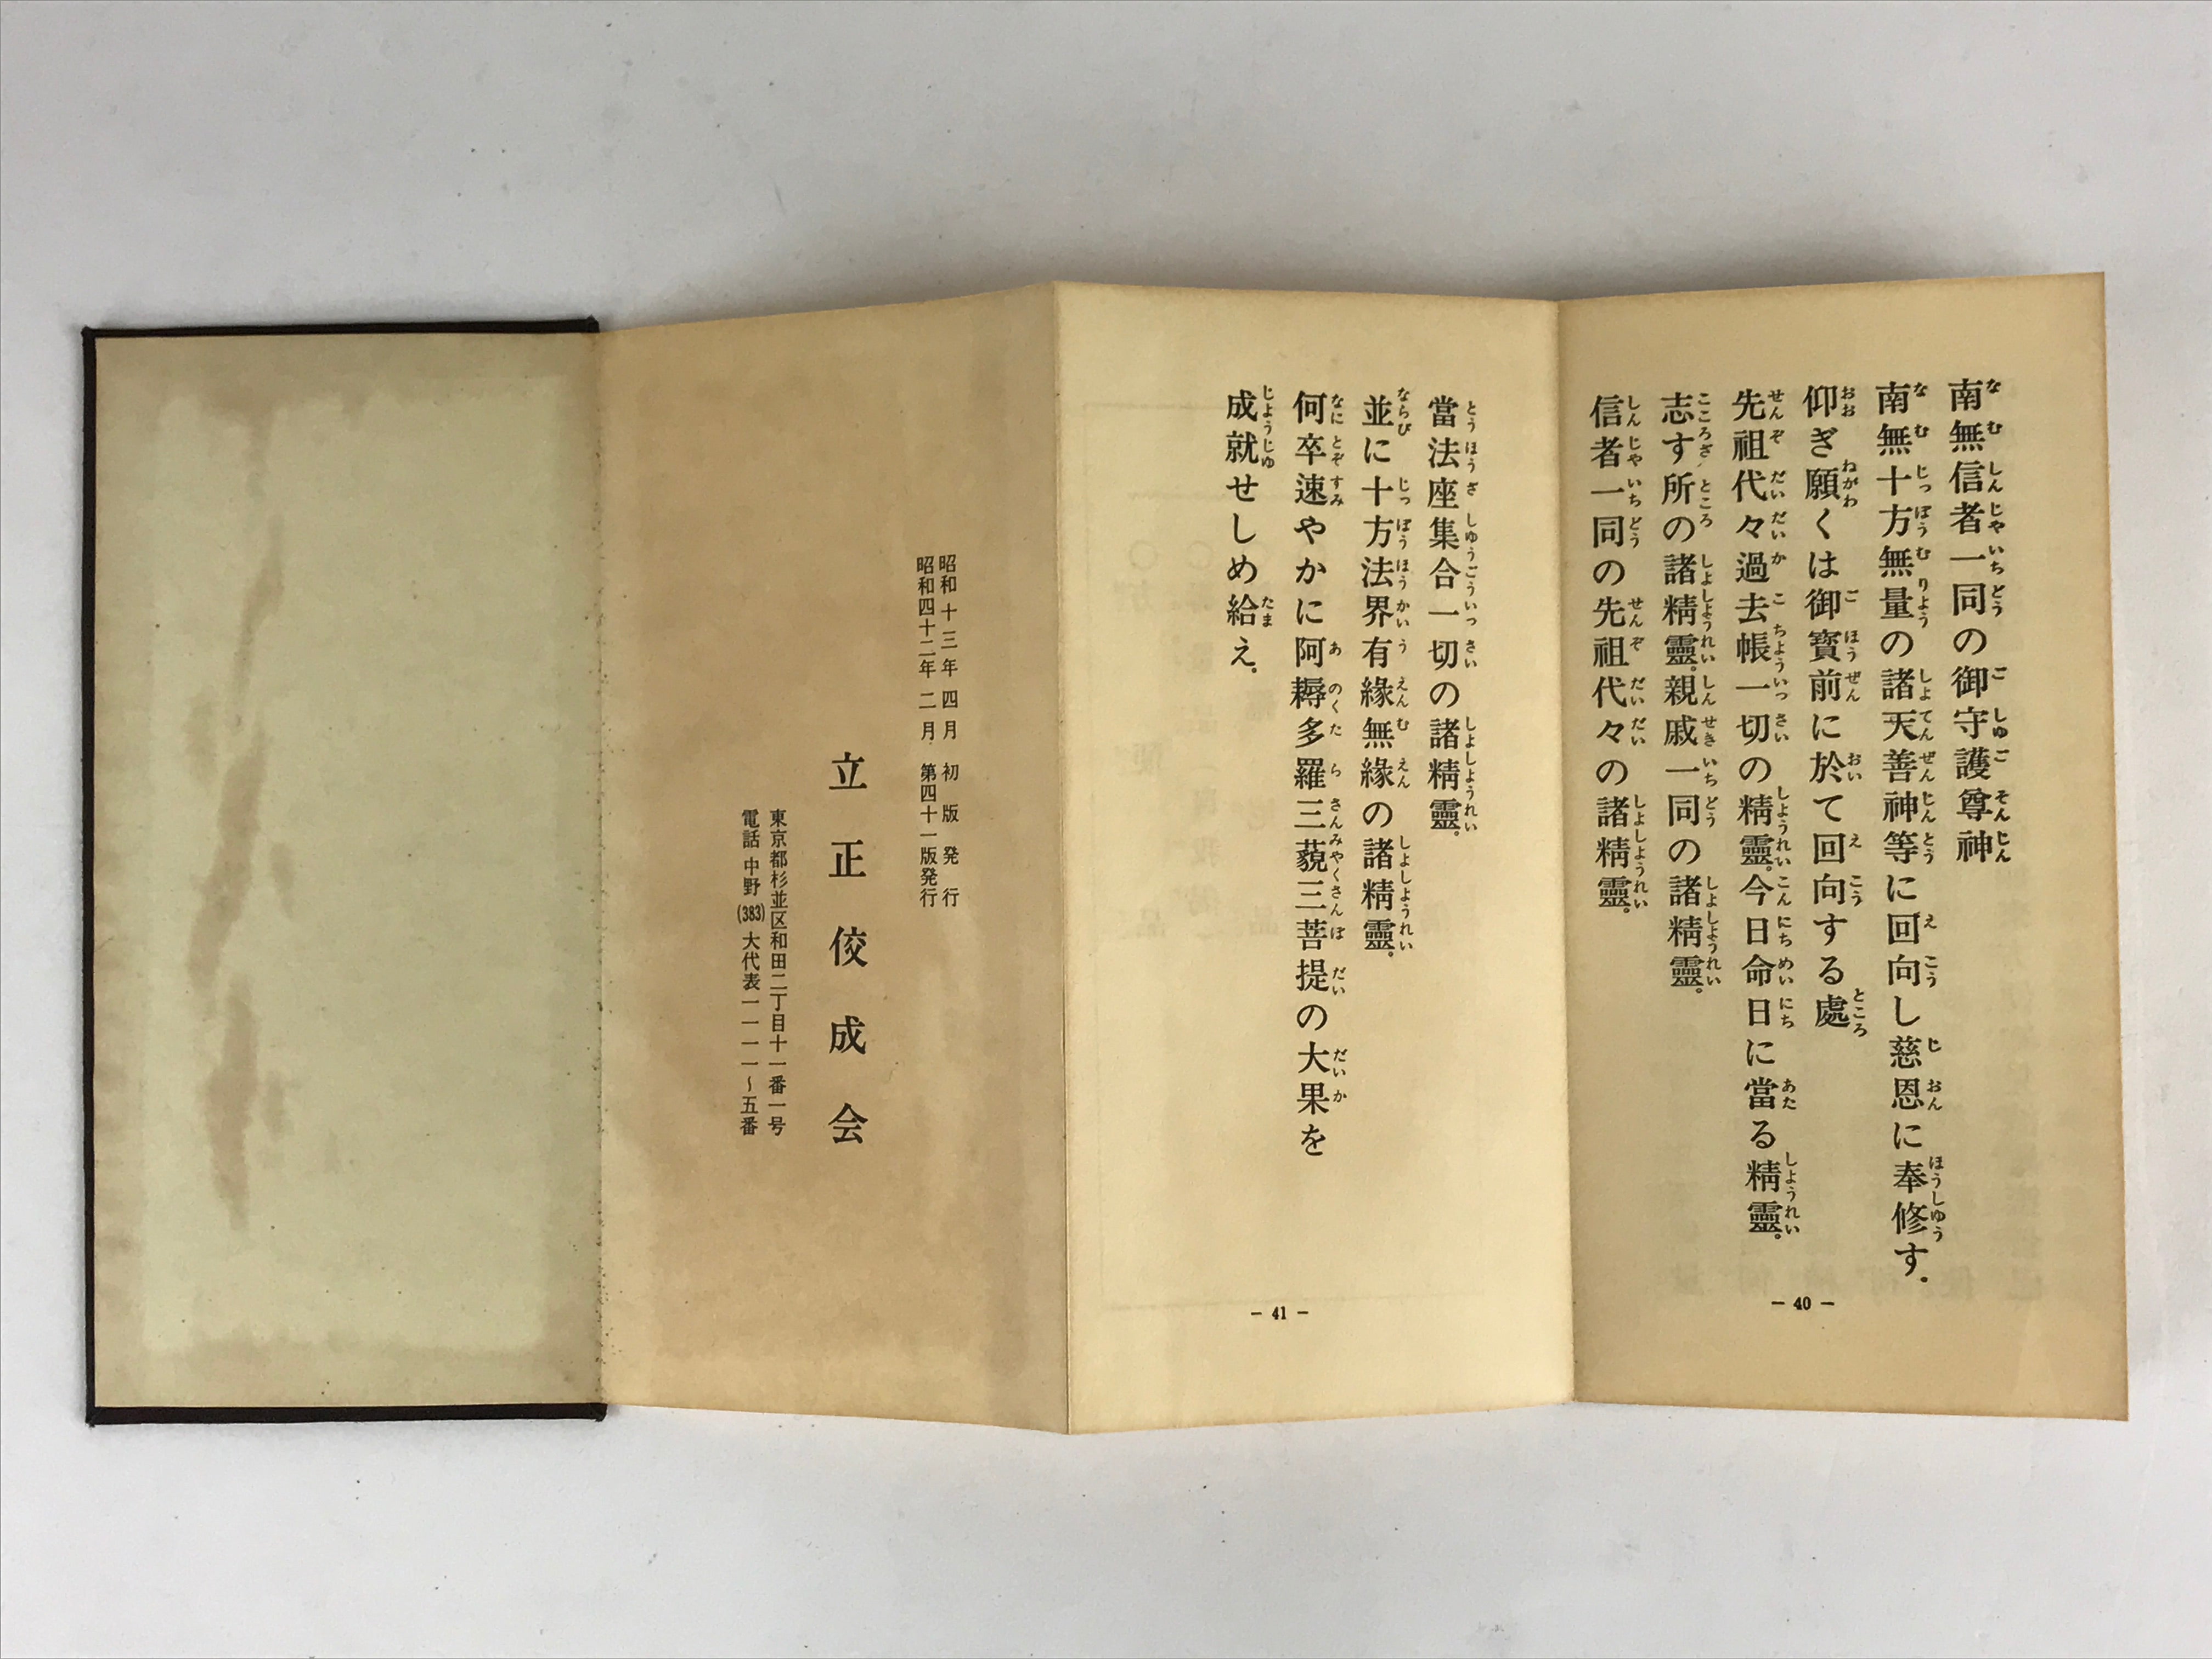 南無信者一同の御守護尊神
南無十方無量の諸天善神等に回向し慈恩に奉修す。
仰ぎ願くは御寳前に於て回向する處
先祖代々過去帳一切の精靈。今日命日に當る精靈。
志す所の諸精靈。親戚一同の諸精靈。
信者一同の先祖代々の諸精靈。
- 40 -
當法座集合一切の諸精靈。
並に十方法界有緣無緣の諸精靈。
何卒速やかに阿耨多羅三藐三菩提の大果を
成就せしめ給え。
- 41 -
昭和十三年四月 初版発行
昭和四十二年二月 第四十一版発行
立正佼成会
東京都杉並区和田二丁目十一番一号
電話 中野(383)大代表一一一一〜五番